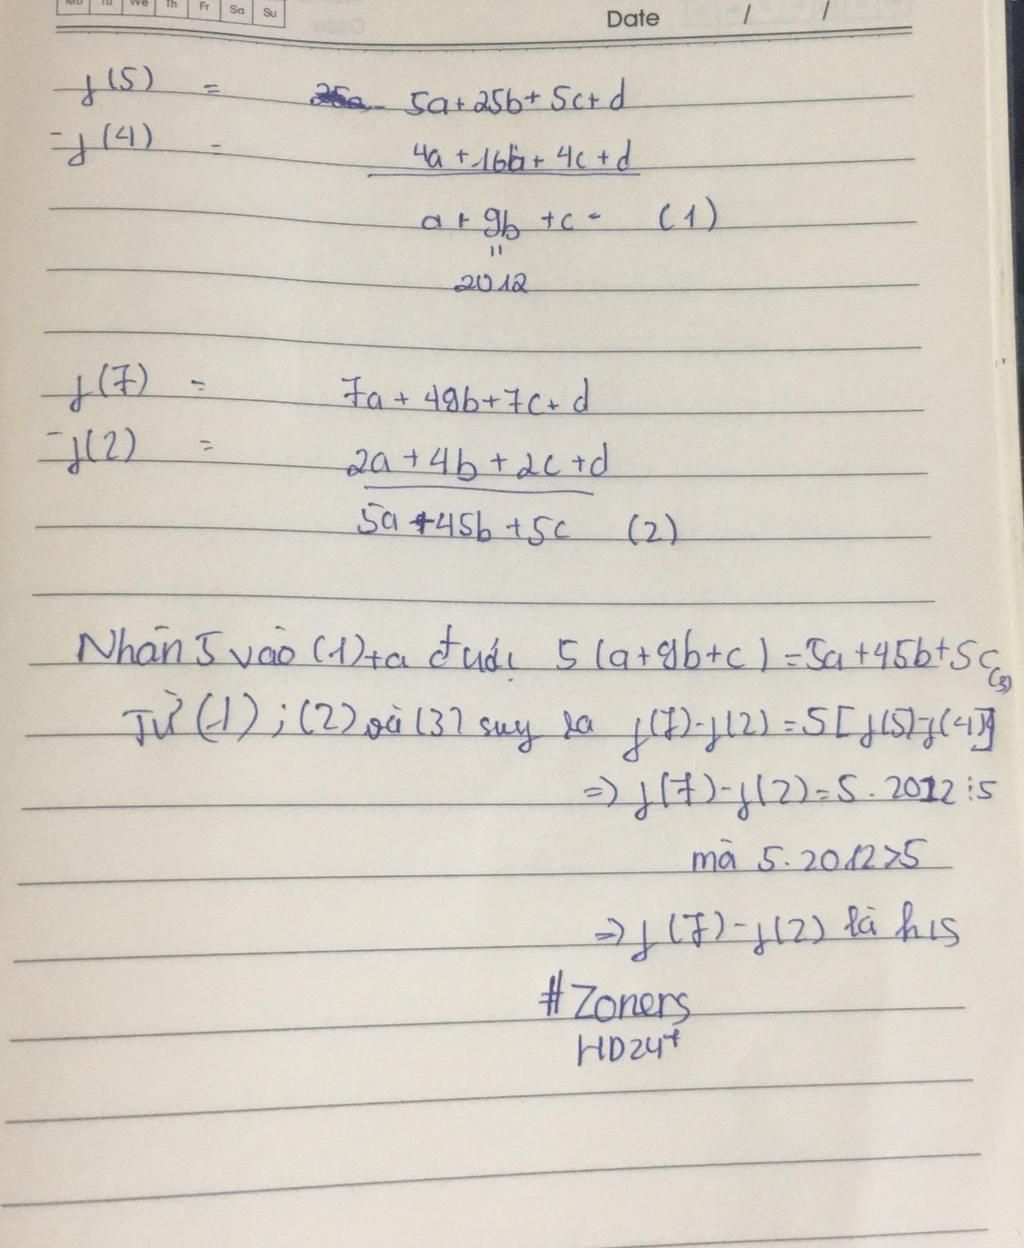 Mo Tu We Th Fr Sa Su
Date / /
f(5) = 5a+25b+5c+d
-f(4) = 4a+16b+4c+d
a+9b+c = (1)
"
2012
f(7) = 7a+49b+7c+d
-f(2) = 2a+4b+2c+d
5a+45b+5c (2)
Nhân 5 vào (1) ta được 5(a+9b+c)=5a+45b+5c (3)
Từ (1);(2) và (3) suy ra f(7)-f(2)=5[f(5)-f(4)]
=> f(7)-f(2)=5.2012⋮5
mà 5.2012>5
=> f(7)-f(2) là h/s
#Zoners
HD247